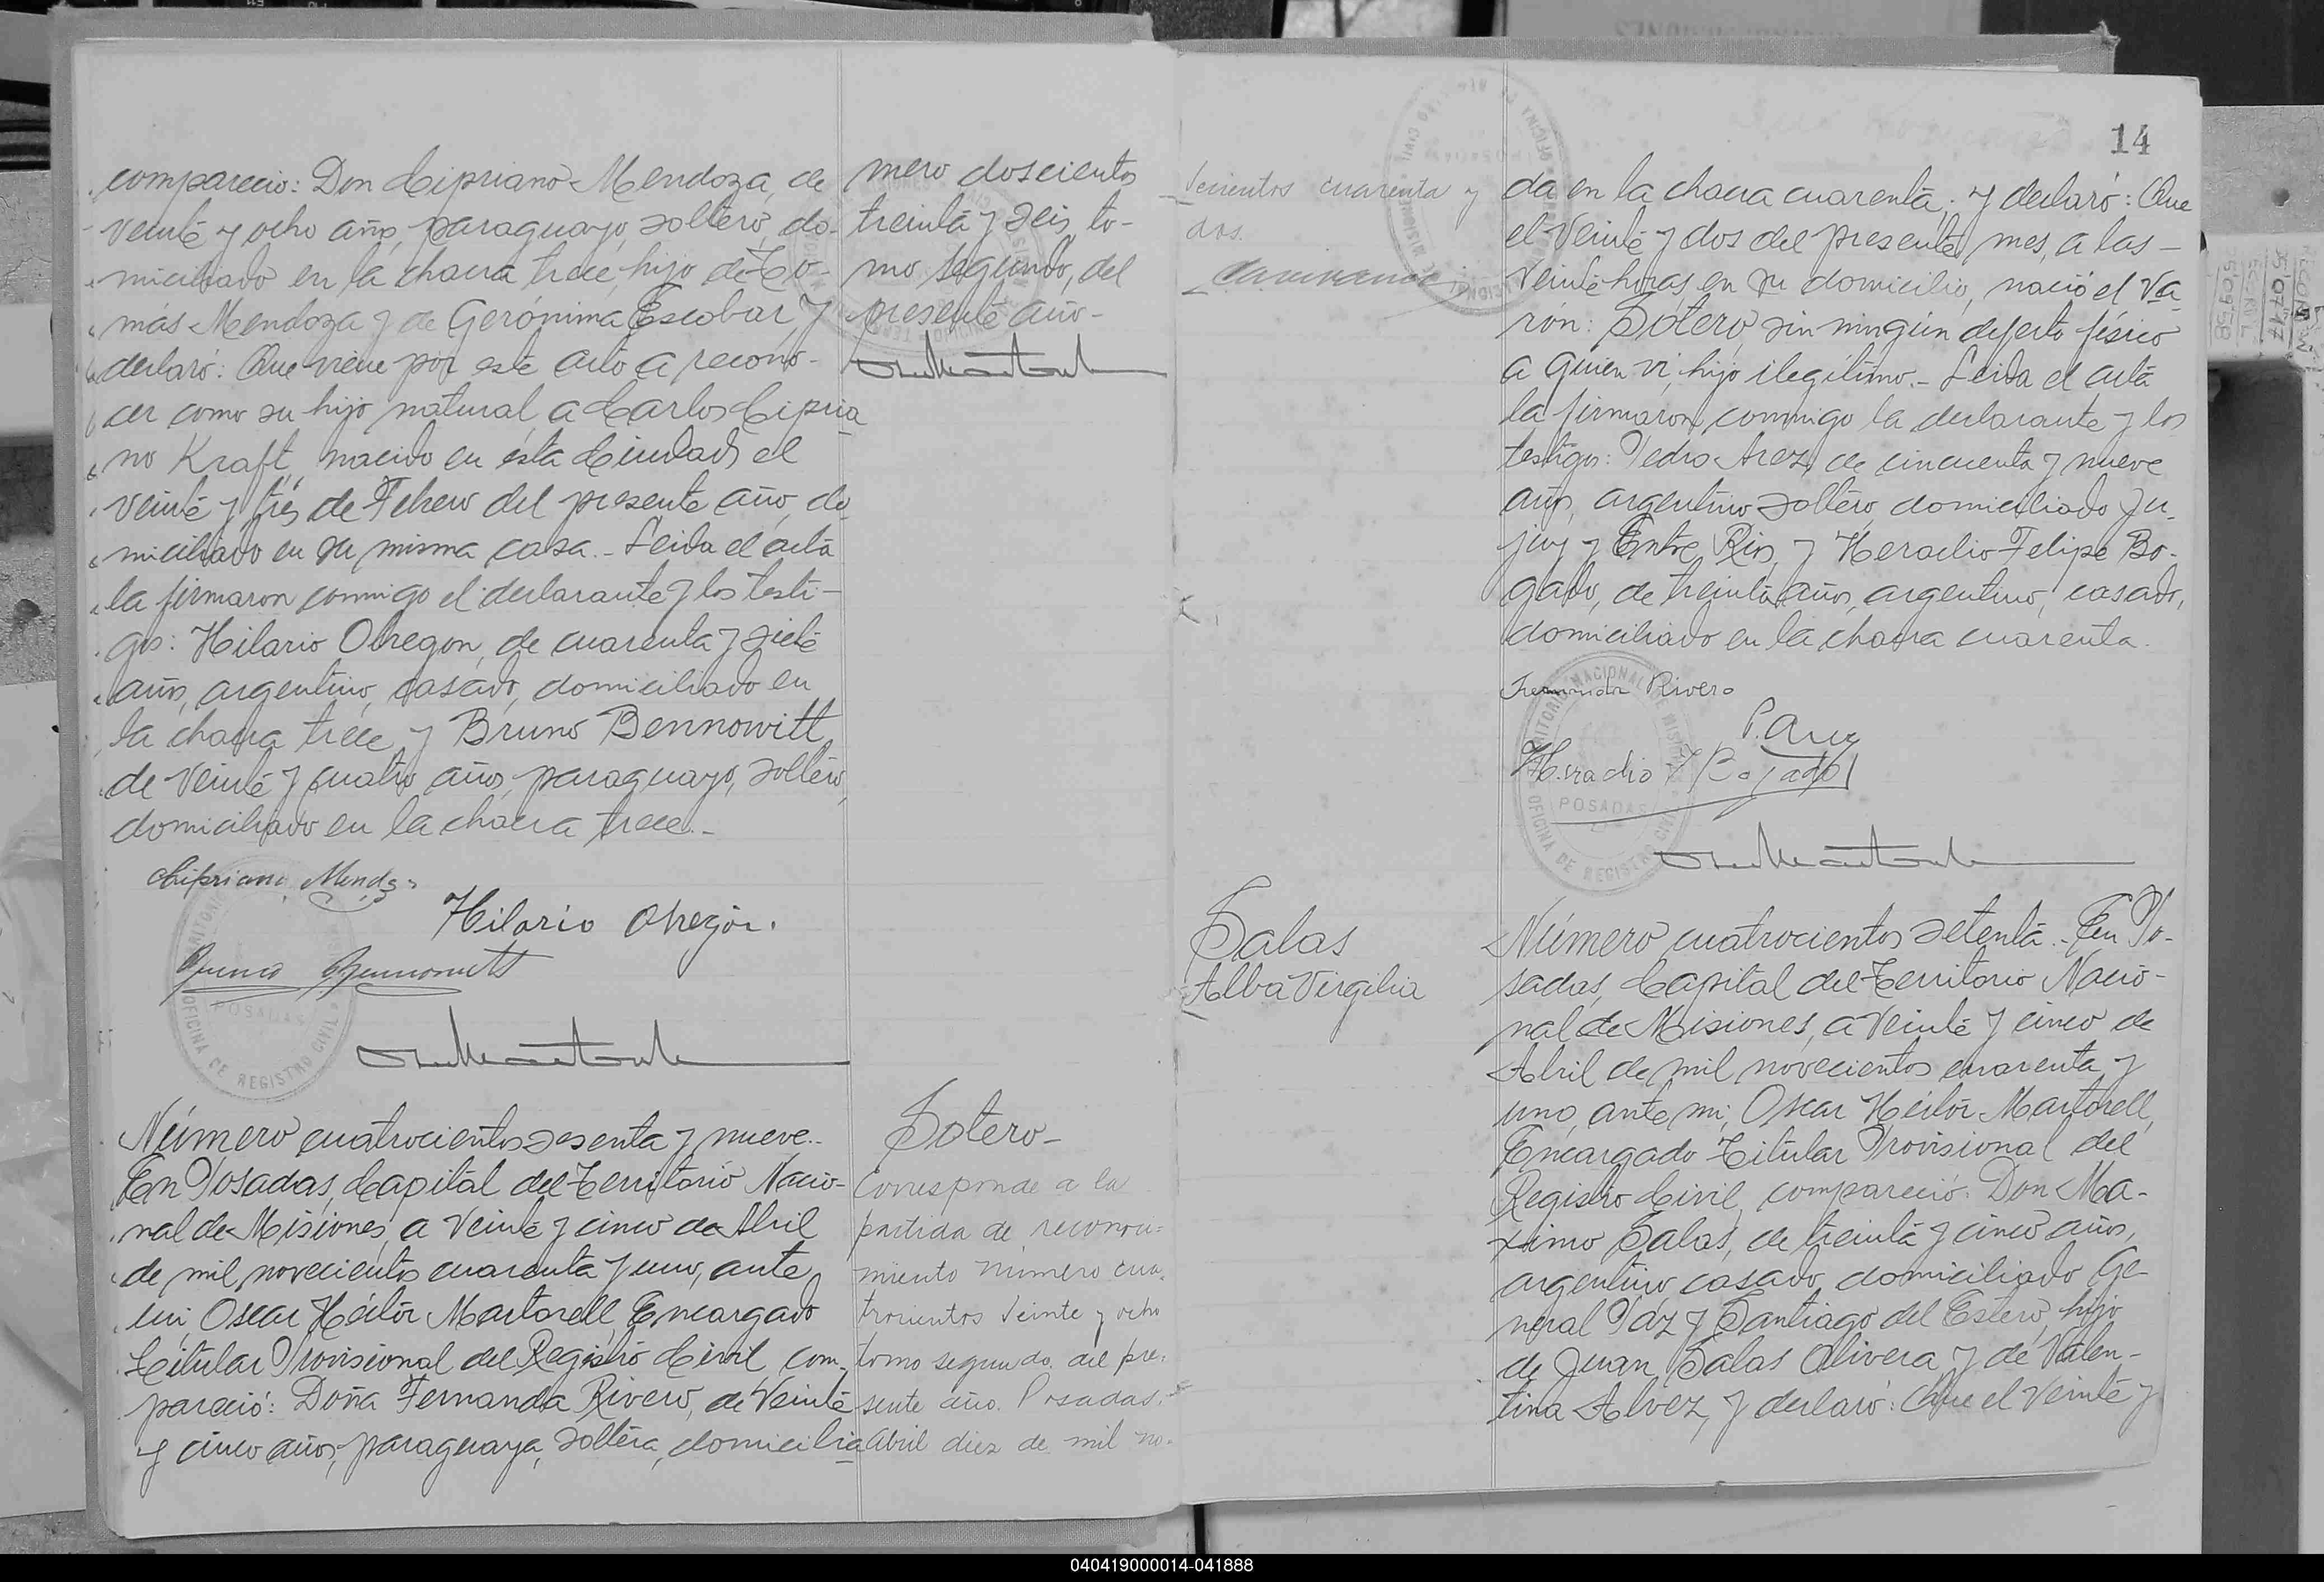 compareció: Don Cipriano Mendoza, de
veinte y ocho años, paraguayo, soltero, do-
miciliado en la chacra trece, hijo de To-
más Mendoza y de Gerónima Escobar y
declaró: Que viene por este acto a recono-
cer como su hijo natural, a Carlos Cipria
no Kraft, nacido en ésta Ciudad, el
veinte y trés de Febrero del presente año, do
miciliado en su misma casa.- Leida el acta
la firmaron conmigo el declarante y los testi-
gos: Hilario Obregon, de cuarenta y siete
años, argentino, casado, domiciliado en
la chacra trece y Bruno Bennowitt
de veinte y cuatro años, paraguayo, soltero,
domiciliado en la chacra trece.-
Chipriano Mendoza
Hilario Obregón.
Bruno Bennowitt
OFICINA DE REGISTRO CIVIL
POSADAS
mero doscientos
treinta y seis, to-
mo segundo, del
presente año-
Número cuatrocientos sesenta y nueve.-
En Posadas, Capital del Territorio Nacio-
nal de Misiones, a veinte y cinco de Abril
de mil novecientos cuarenta y uno, ante
mi, Oscar Héctor Martorell, Encargado
Titular Provisional del Registro Civil, com-
pareció: Doña Fernanda Rivero, de veinte
y cinco años, paraguaya, soltera, domicilia
Sotero-
Corresponde a la
partida de reconoci-
miento número cua-
trocientos veinte y ocho
tomo segundo del pre-
sente año. Posadas,
Abril diez de mil no-
vecientos cuarenta y
dos.
14
da en la chacra cuarenta, y declaró: Que
el veinte y dos del presente mes, a las-
veinte horas en su domicilio, nació el va
rón: Sotero, sin ningún defecto físico
a quien ví, hijo ilegítimo.- Leida el acta
la firmaron conmigo la declarante y los
testigos: Pedro Arez, de cincuenta y nueve
años, argentino soltero, domiciliado Ju-
juy y Entre Rios, y Heraclio Felipe Bo-
gado, de treinta años, argentino, casado,
domiciliado en la chacra cuarenta.
Fernanda Rivero
P. Arez
Heradio F Bogado
TERRITORIO NACIONAL DE MISIONES
POSADAS
OFICINA DE REGISTRO CIVIL
Salas
Alba Virgilia
Número cuatrocientos setenta.- En Po-
sadas, Capital del Territorio Nacio-
nal de Misiones, a veinte y cinco de
Abril de mil novecientos cuarenta y
uno, ante mi, Oscar Héctor Martorell,
Encargado Titular Provisional del
Registro Civil, compareció: Don Má-
ximo Salas, de treinta y cinco años,
argentino, casado, domiciliado Ge-
neral Paz y Santiago del Estero, hijo
de Juan Salas Olivera y de Valen-
tina Alvez, y declaró: Que el veinte y
040419000014-041888